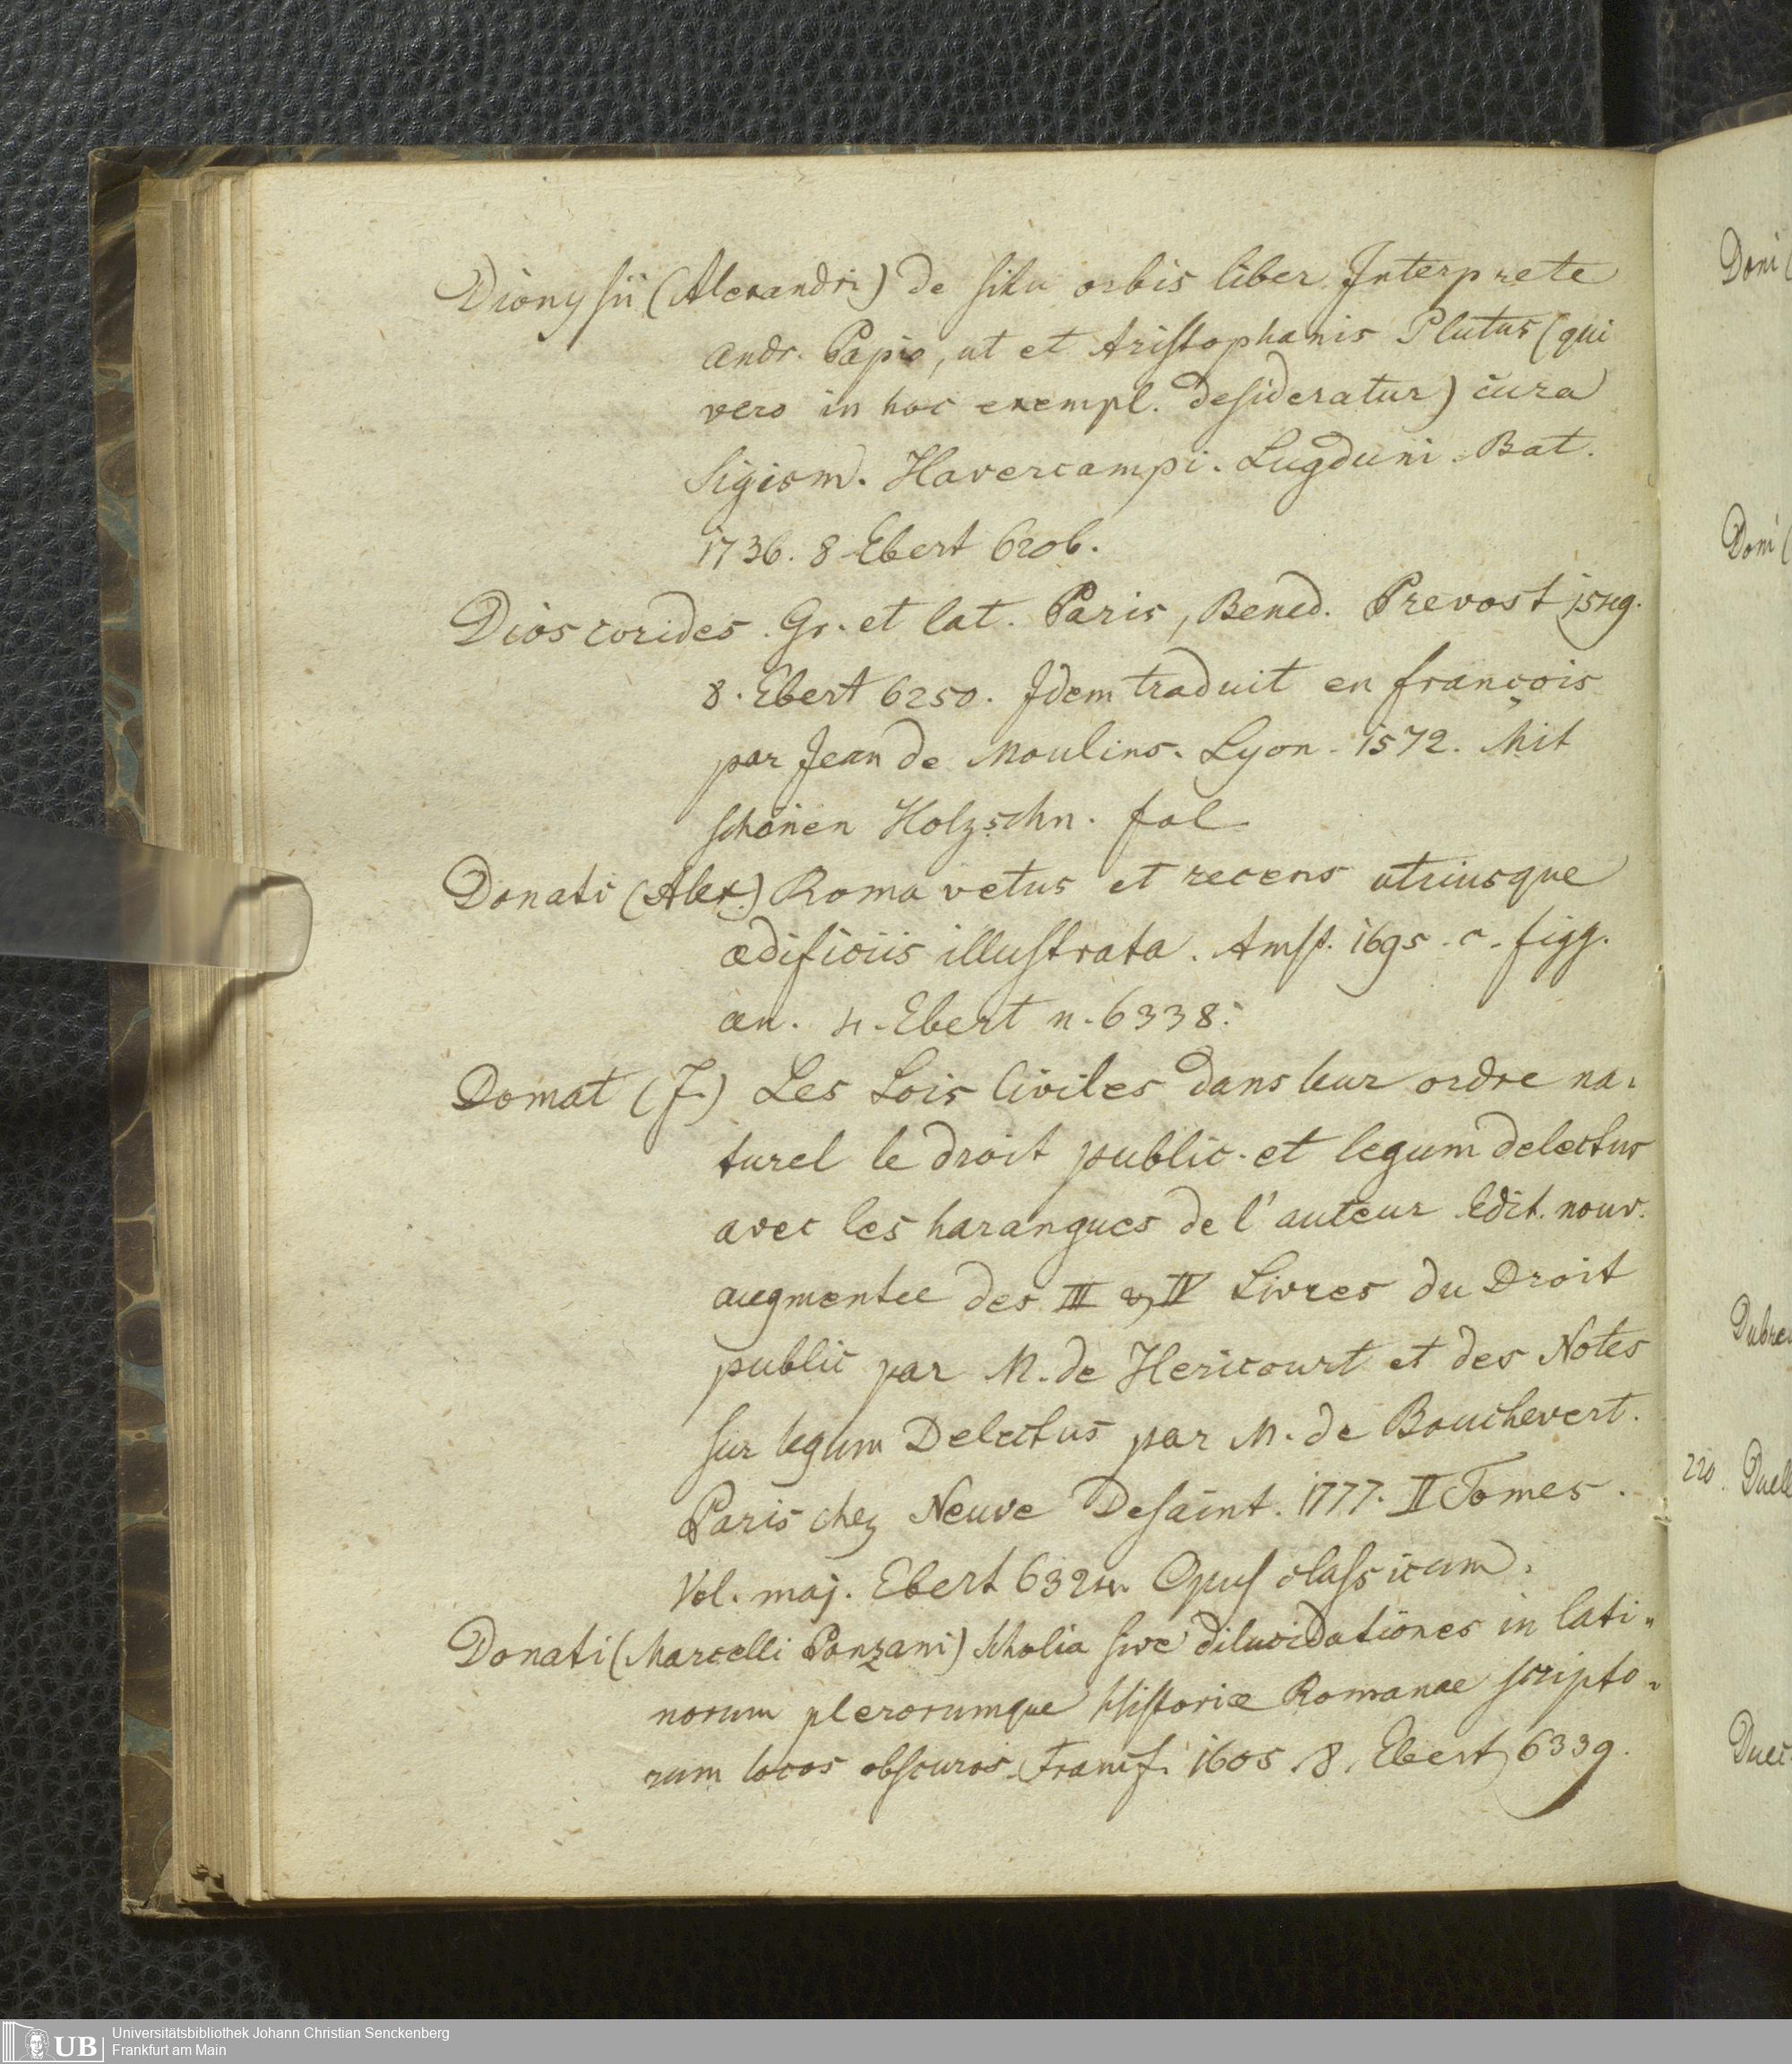 Dionysii (Alexandri) de situ orbis liber. Interprete
Andr. Papio, ut et Aristophanis Plutus (qui
vero in hoc exempl. desideratur) cura
Sigism. Havercampi. Lugduni. Bat.
1736. 8 Ebert 6206.
Dioscorides. Gr. et lat. Paris, Bened. Prevost 1549.
8. Ebert 6250. Idem traduit en françois
par Jean de Moulins. Lyon. 1572. Mit
schönen Holzschn. fol.
Donati (Alex.) Roma vetus et recens utriusque
ædificiis illustrata. Amst. 1695. c. figg.
æn. 4. Ebert n. 6338.
Domat (J.) Les Lois Civiles dans leur ordre na-
turel le droit public. et legum delectus
avec les harangues de l'auteur Edit. nouv.
augmentee des III & IV Livres du Droit
public par M. de Hericourt et des Notes
sur legum Delectus par M. de Bouchevert.
Paris chez Neuve Desaint. 1777. II Tomes.
Vol. maj. Ebert 6324. Opus classicum.
Donati (Marcelli Ponzani) Scholia sive dilucidationes in lati-
norum plerorumque Historiæ Romanae scripto-
rum locos obscuros. Francf. 1605. 8. Ebert 6339.
Doni (
Doni (
220. Duell
UB
Universitätsbibliothek Johann Christian Senckenberg
Frankfurt am Main